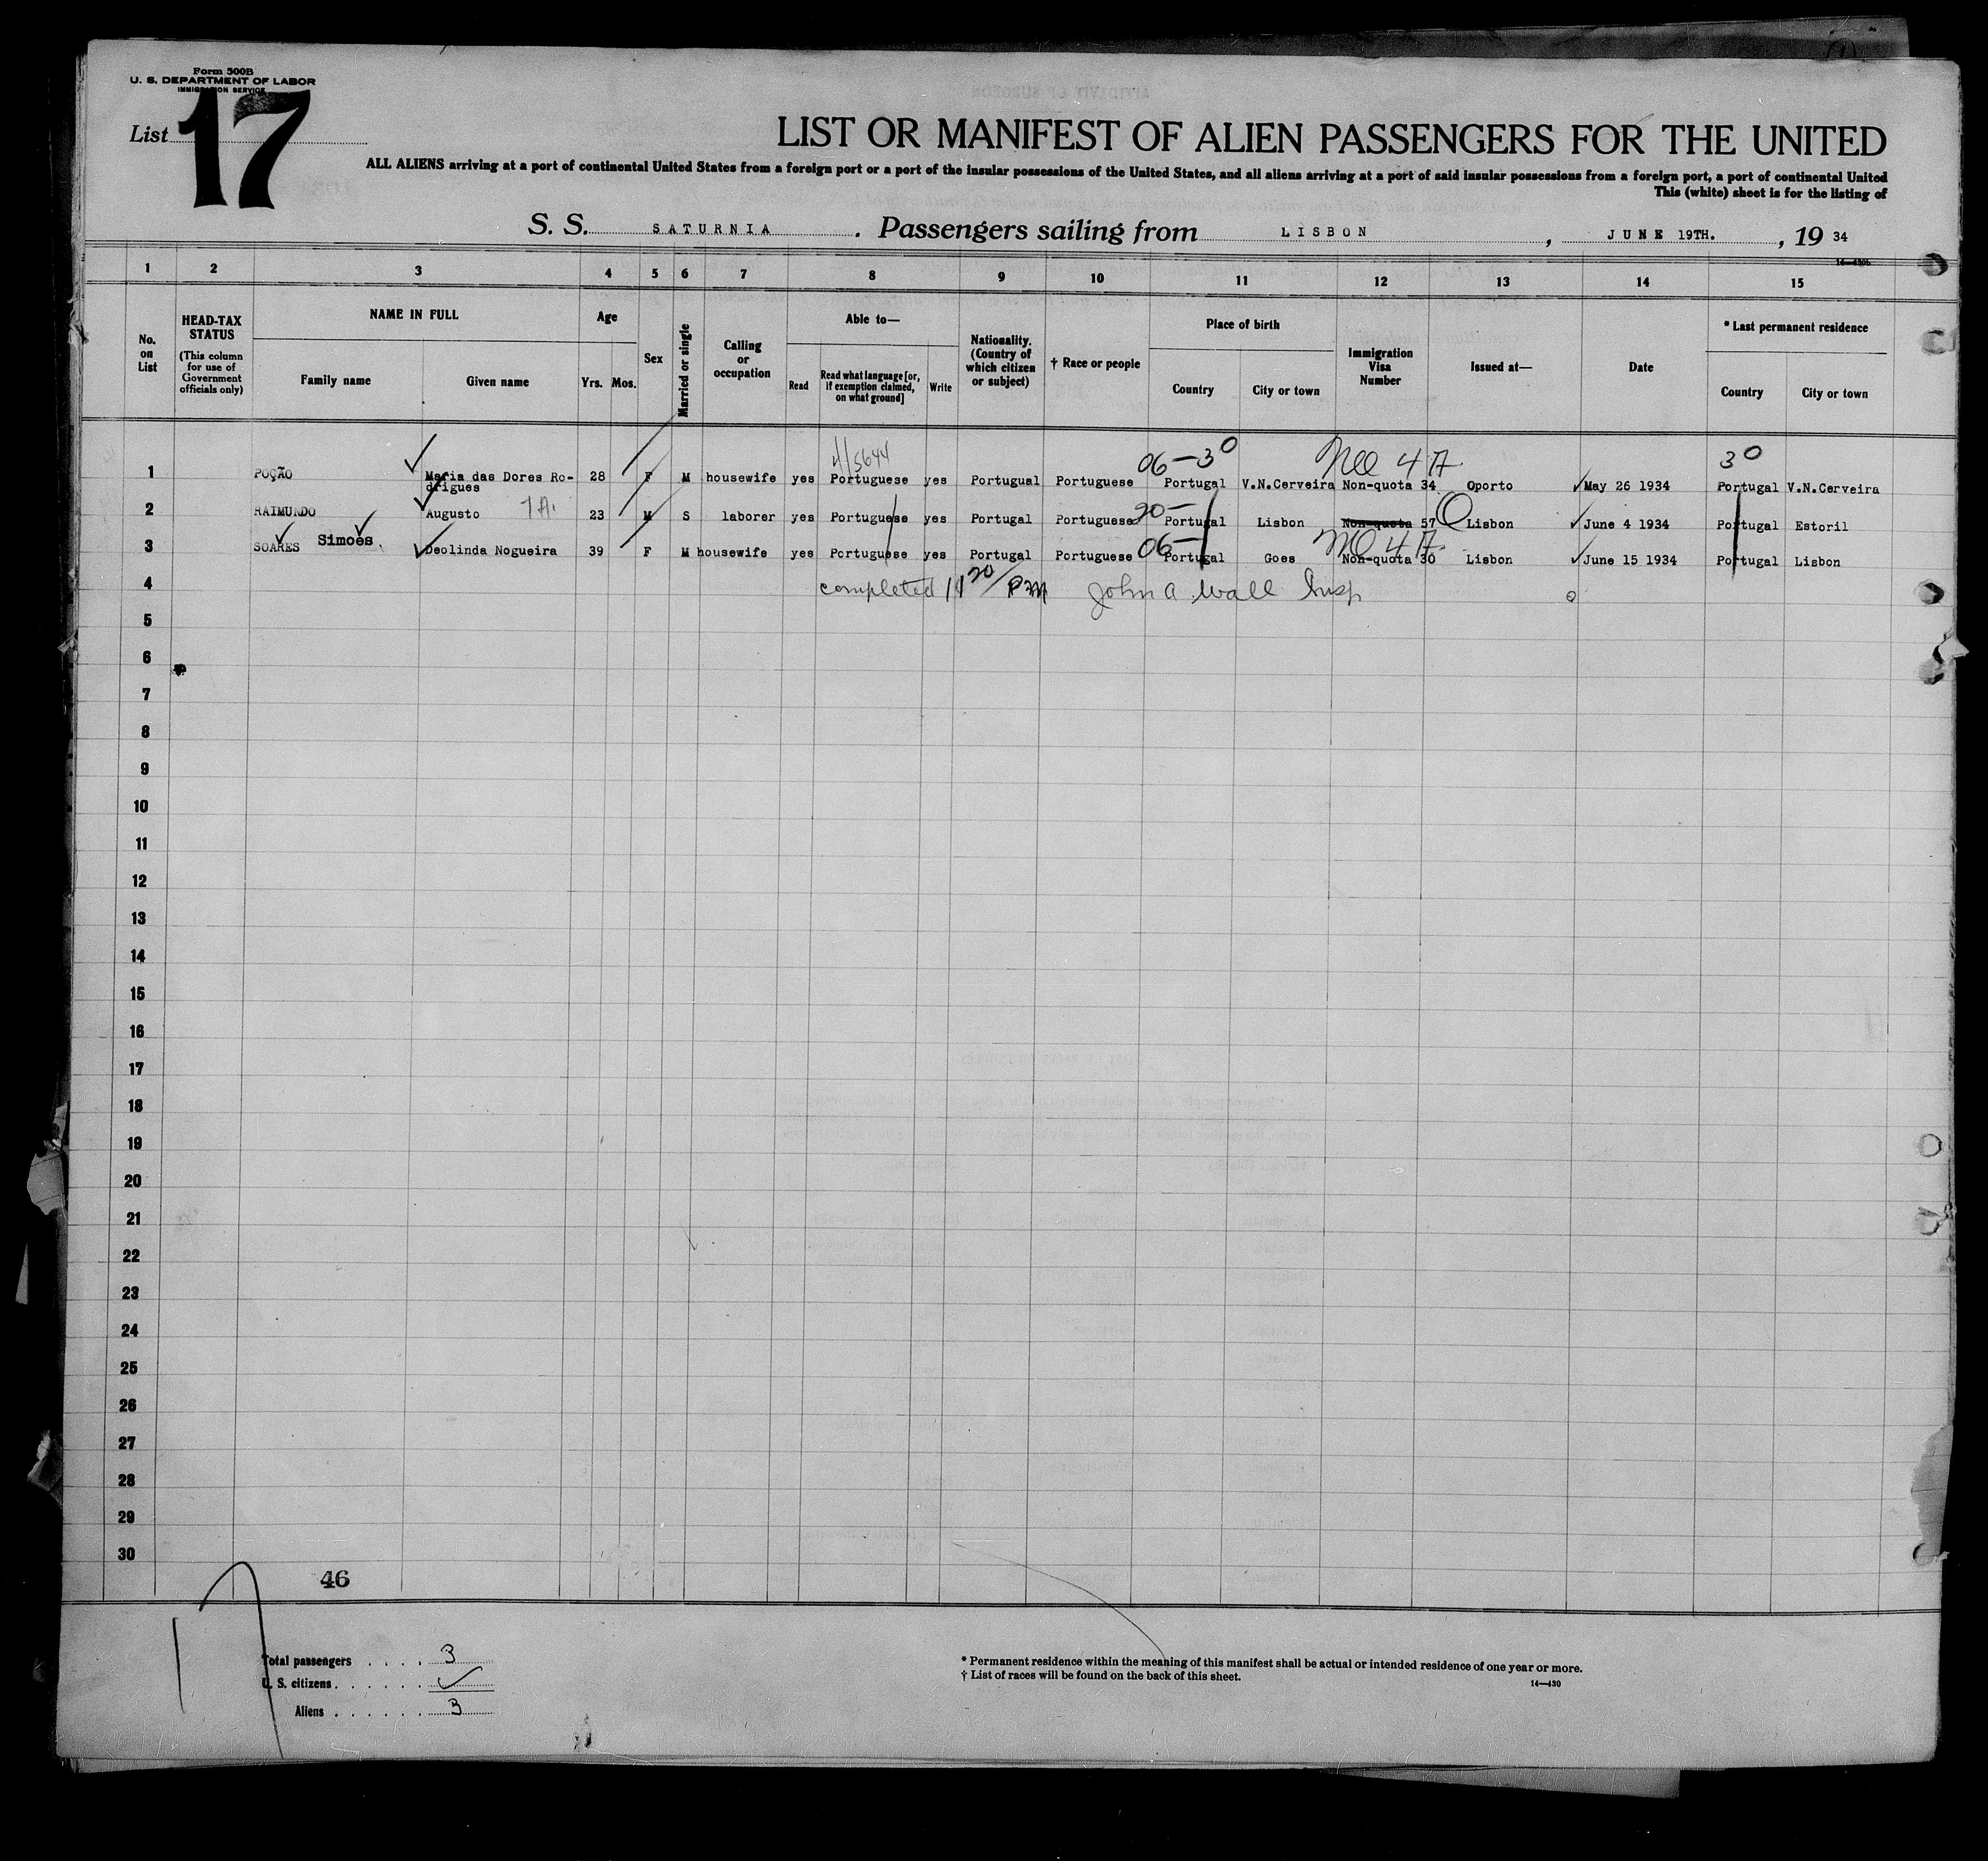 Form 500B
U. S. DEPARTMENT OF LABOR
IMMIGRATION SERVICE
List 17
LIST OR MANIFEST OF ALIEN PASSENGERS FOR THE UNITED
ALL ALIENS arriving at a port of continental United States from a foreign port or a port of the insular possessions of the United States, and all aliens arriving at a port of said insular possessions from a foreign port, a port of continental United
This (white) sheet is for the listing of
S. S. SATURNIA. Passengers sailing from LISBON, JUNE 19TH., 19 34
14—430b
1 2 3 4 5 6 7 8 9 10 11 12 13 14 15
No. on List
HEAD-TAX STATUS
(This column for use of Government officials only)
NAME IN FULL
Family name
Given name
Age
Yrs. Mos.
Sex
Married or single
Calling or occupation
Able to—
Read
Read what language [or, if exemption claimed, on what ground]
Write
Nationality. (Country of which citizen or subject)
† Race or people
Place of birth
Country
City or town
Immigration Visa Number
Issued at—
Date
* Last permanent residence
Country
City or town
06-30 30
1 POÇÃO Maria das Dores Ro- 28 F M housewife yes Portuguese yes Portugual Portuguese Portugal V.N.Cerveira Non-quota 34 Oporto May 26 1934 Portugal V.N.Cerveira
drigues
2 RAIMUNDO Augusto 23 M S laborer yes Portuguese yes Portugal Portuguese 20- Portugal Lisbon Non-quota 57 Lisbon June 4 1934 Portugal Estoril
3 SOARES Simoes. Deolinda Nogueira 39 F M housewife yes Portuguese yes Portugal Portuguese 06- Portugal Goes Non-quota 30 Lisbon June 15 1934 Portugal Lisbon
4 completed 11 20/PM John A Wall Insp
5
6
7
8
9
10
11
12
13
14
15
16
17
18
19
20
21
22
23
24
25
26
27
28
29
30
46
17
Total passengers . . . . 3
U. S. citizens . . . . . .
Aliens . . . . . . 3
* Permanent residence within the meaning of this manifest shall be actual or intended residence of one year or more.
† List of races will be found on the back of this sheet.
14—430